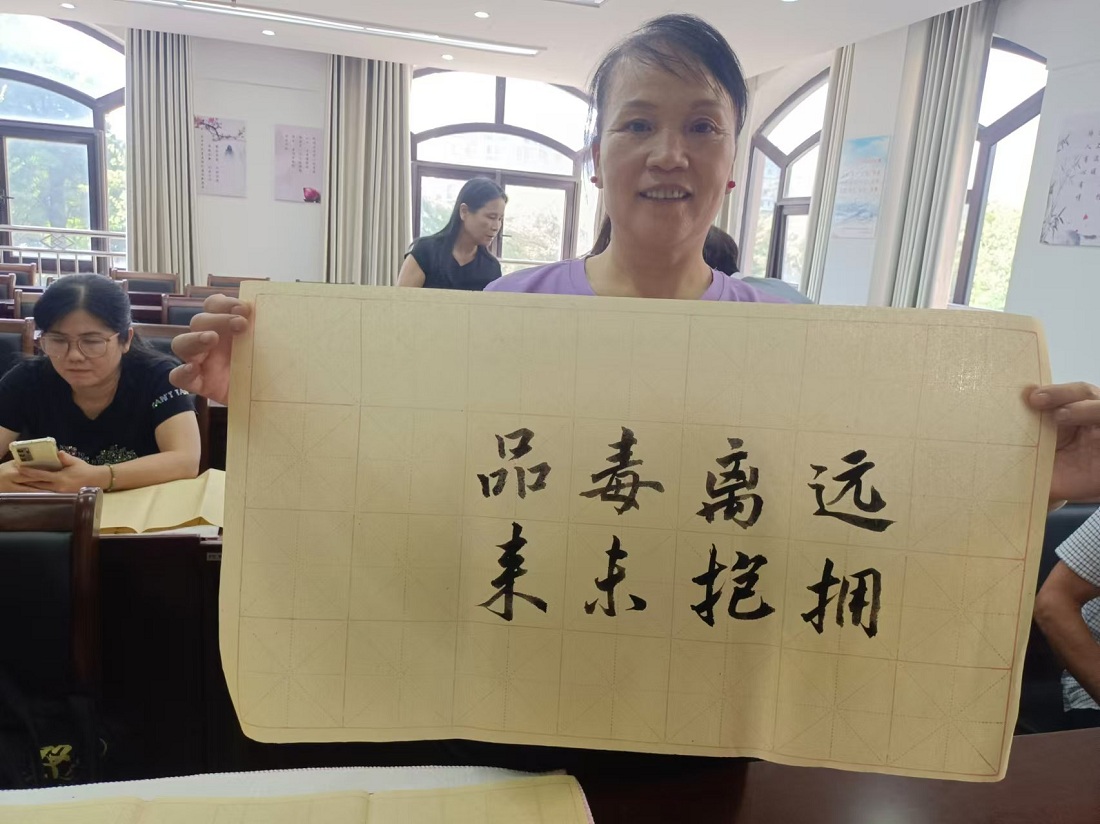 远离毒品
拥抱未来